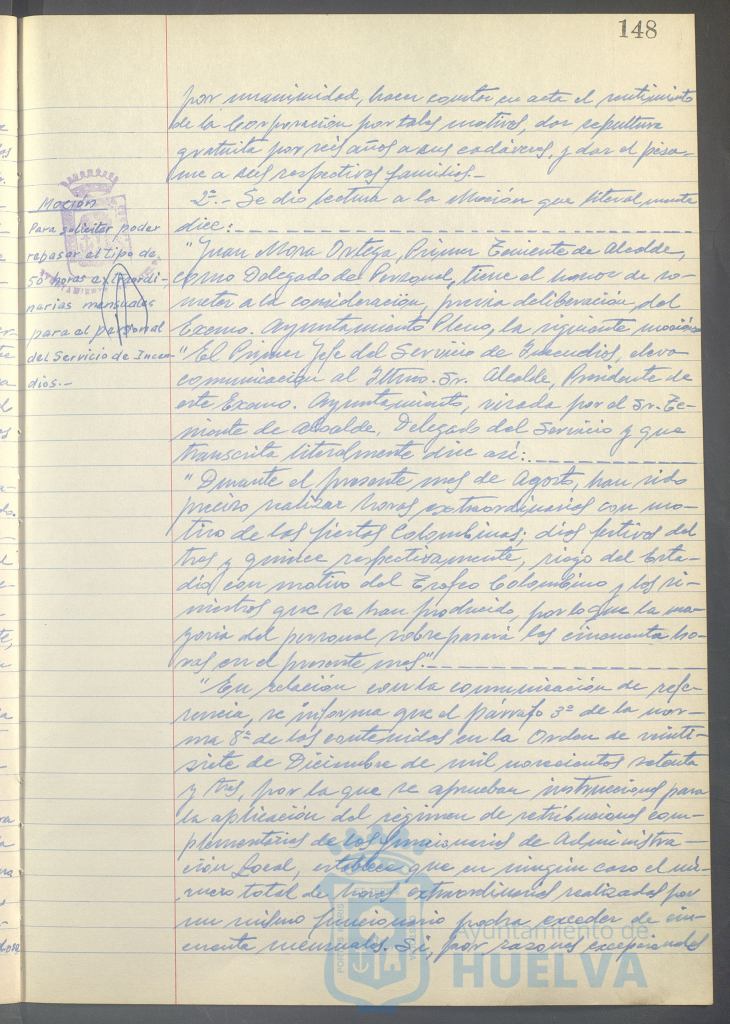 148
por unanimidad, hacer constar en acta el sentimiento
de la Corporación por tales motivos, dar sepultura
gratuita por seis años a sus cadáveres, y dar el pésa-
me a sus respectivas familias.-
2º.- Se dio lectura a la Moción que literalmente
dice:
Moción
Para solicitar poder
repasar el tipo de
50 horas extraordi-
narias mensuales
para el personal
del Servicio de Incen-
dios.-
"Juan Mora Ortega, Primer Teniente de Alcalde,
como Delegado del Personal, tiene el honor de so-
meter a la consideración, previa deliberación, del
Excmo. Ayuntamiento Pleno, la siguiente moción:
"El Primer Jefe del Servicio de Incendios, eleva
comunicación al Iltmo. Sr. Alcalde, Presidente de
este Excmo. Ayuntamiento, visada por el Sr. Te-
niente de Alcalde, Delegado del Servicio y que
transcrita literalmente dice así:
"Durante el presente mes de Agosto, han sido
preciso realizar horas extraordinarias con mo-
tivo de las fiestas Colombinas; días festivos del
tres y quince respectivamente, riego del Esta-
dio con motivo del Trofeo Colombino y los si-
niestros que se han producido, por lo que la ma-
yoría del personal sobrepasará las cincuenta ho-
ras en el presente mes."
"En relación con la comunicación de refe-
rencia, se informa que el párrafo 3º de la nor-
ma 8ª de las contenidas en la Orden de veinti-
siete de Diciembre de mil novecientos setenta
y tres, por la que se aprueban instrucciones para
la aplicación del régimen de retribuciones com-
plementarias de los funcionarios de Administra-
ción Local, establece que en ningún caso el nú-
mero total de horas extraordinarias realizadas por
un mismo funcionario podrá exceder de cin-
cuenta mensuales. Si, por razones excepcionales
Ayuntamiento de
HUELVA